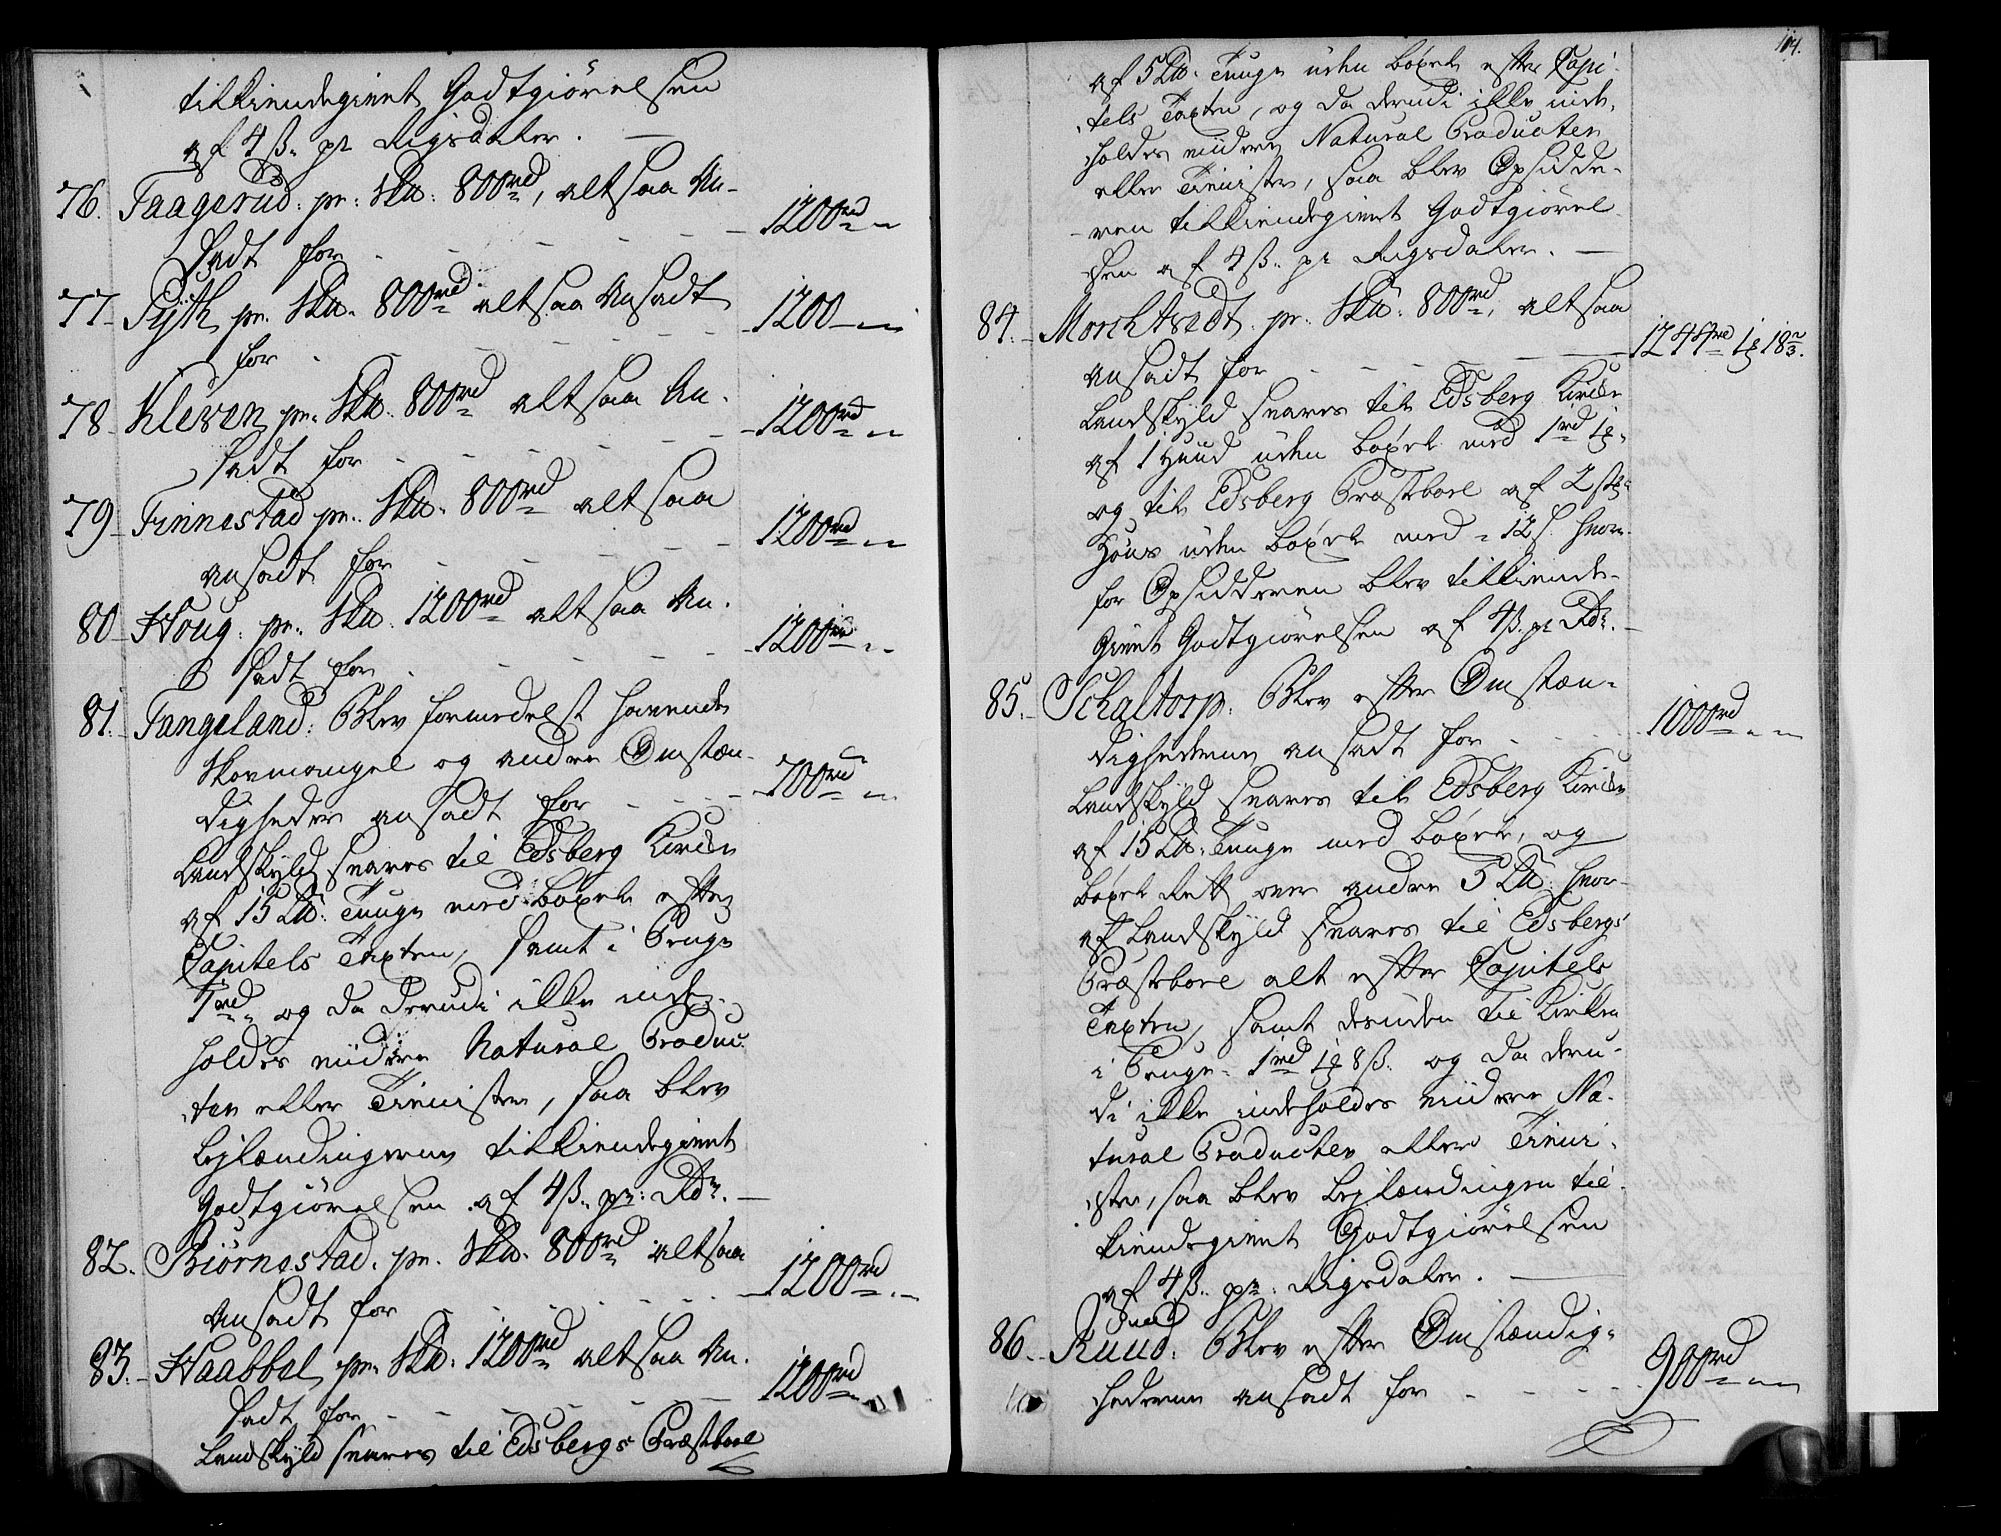 tilkiendegivet Godtgiörelsen
af 4 ß. pr Rigsdaler. —
76. Taagerud: pr: Skd: 800rd, altsaa An-
sadt for - - - - - 1200rd
77- Sijth pr. Skd. 800rd altsaa Ansadt
for - - - - - 1200
78- Kleven pr. Skd. 800rd altsaa An-
sadt for - - - - - 1200rd
79- Finnestad pr. Skd. 800rd altsaa
ansadt for - - - - - 1200rd
80- Houg: pr. Skd. 1200rd altsaa An-
sadt for - - - - - 1200rd
81.- Tangeland: Blev formedelst havende
Skovmangel og andre Omstæn-
digheder ansadt for - - - 700rd
Landskyld svares til Edsberg Kircke
af 15 Ld: Tunge med böxel efter
Capitels Taxten, samt i Penge
1rd og da derudi ikke inde-
holdes viidere Natural Produc-
ter eller Tieniste, saa blev
Lejlændingerne tilkiendegivet
Godtgiörelsen af 4 ß. pr: Rdr. —
82. Biörnestad. pr. Skd. 800rd altsaa
ansadt for - - - - - 1200rd
83.- Haabbel pr. Skd. 1200rd altsaa An-
sadt for - - - - - 1200rd
Landskyld svares til Edsbergs Præstboel
114.
af 5 Ld. Tunge uden böxel efter Capi-
tels Taxten, og da derudi ikke inde-
holdes viidere Natural Producter
eller Tieniste, saa blev Opsidde-
ren tilkiendegivet Godtgiörel-
sen af 4 ß. pr Rigsdaler. —
84.- Morchtvedt. pr. Skd. 800rd, altsaa
ansadt for - - - 1244rd 1 18 2/3.
Landskyld svares til Edsberg Kircke
af 1 Huud uden böxel med 1rd 1
og til Edsberg Præstboel af 2 st.
Höns uden böxel med 12 ß. hvor-
for Opsidderen blev tilkiende-
givet Godtgiörelsen af 4 ß. pr Rdr. —
85.- Schaltorp. Blev efter Omstæn-
dighederne ansadt for - - - 1000rd
Landskyld svares til Edsberg Kircke
af 15 Ld. Tunge med böxel, og
böxel Rett over andre 5 Ld. hvor-
af Landskyld svares til Edsbergs
Præstboel alt efter Capitels
Taxten, samt desuden til Kirken
i Penge 1rd 1 8 ß. og da deru-
di ikke indeholdes viidere Na-
tural Producter eller Tieni-
ste, saa blev Lejlændingen til-
kiendegivet Godtgiörelsen
af 4 ß. pr: Rigsdaler. —
86.- Ruud. Blev efter Omstændig-
hederne ansadt for - - - 900rd